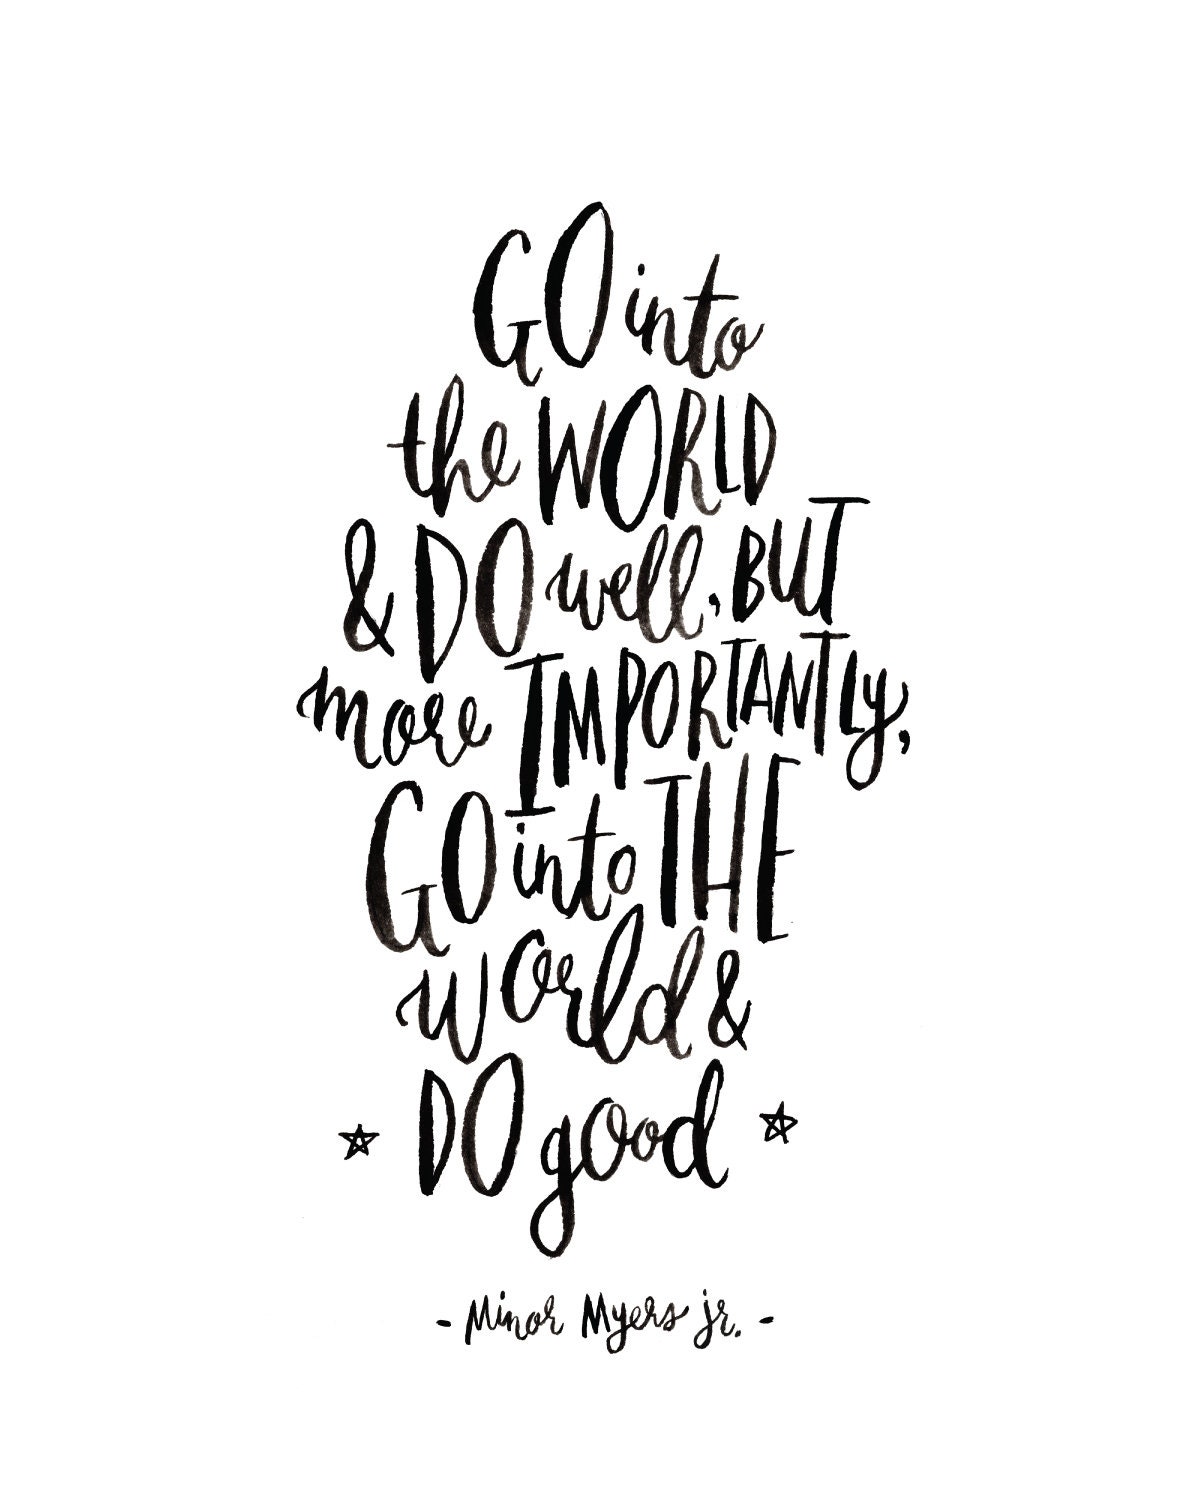 GO into
the WORLD
& DO well, BUT
more IMPORTANTLY,
GO into THE
world &
DO good
- Minor Myers jr. -